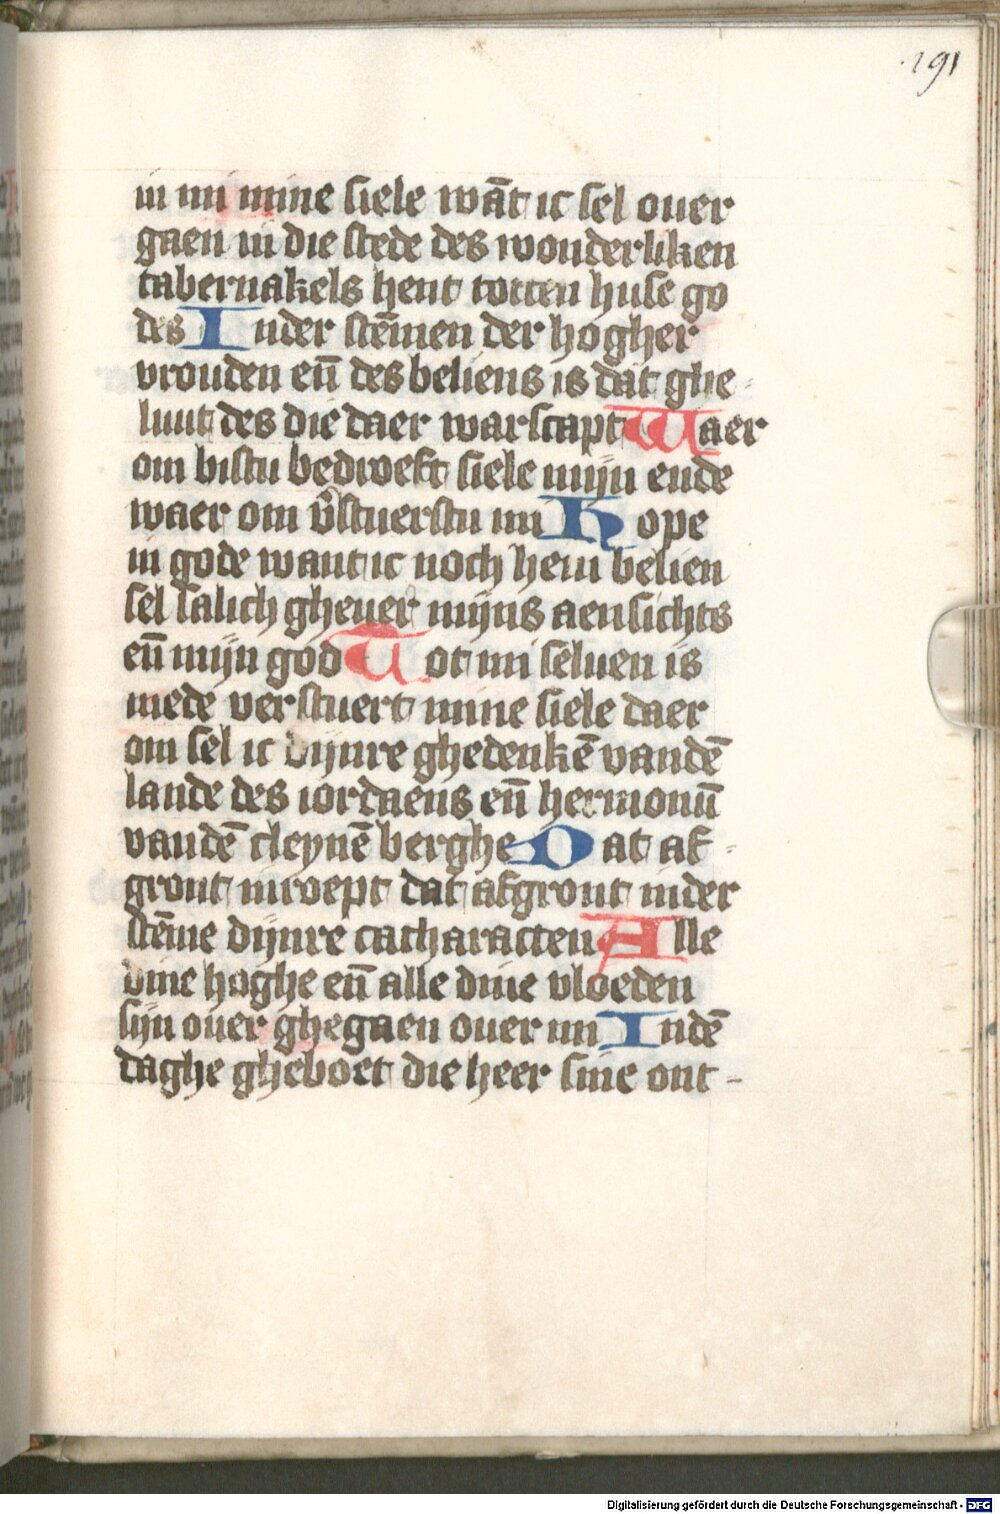 191
in mi mine siele wāt ic sel ouer
gaen in die stede des wonderliken
tabernakels hent totten huse go
des Inder stēmen der hogher
vrouden eñ des beliens is dat ghe-
luut des die daer warscapt Waer
om bistu bedroeft siele mijn ende
waer om v̄stuerstu mi Hope
in gode want ic noch hem belien
sel salich gheuer mijns aensichts
eñ mijn god Tot mi seluen is
mede verstuert mine siele daer
om sel ic dijnre ghedenkē vandē
lande des iordaens eñ hermonū
vandē cleynē berghe Dat af-
gront inroept dat afgront inder
stēme dijnre catharacten Alle
dine hoghe eñ alle dine vloeden
sijn ouer ghegaen ouer mi Indē
daghe gheboet die heer sine ont-
Digitalisierung gefördert durch die Deutsche Forschungsgemeinschaft - DFG